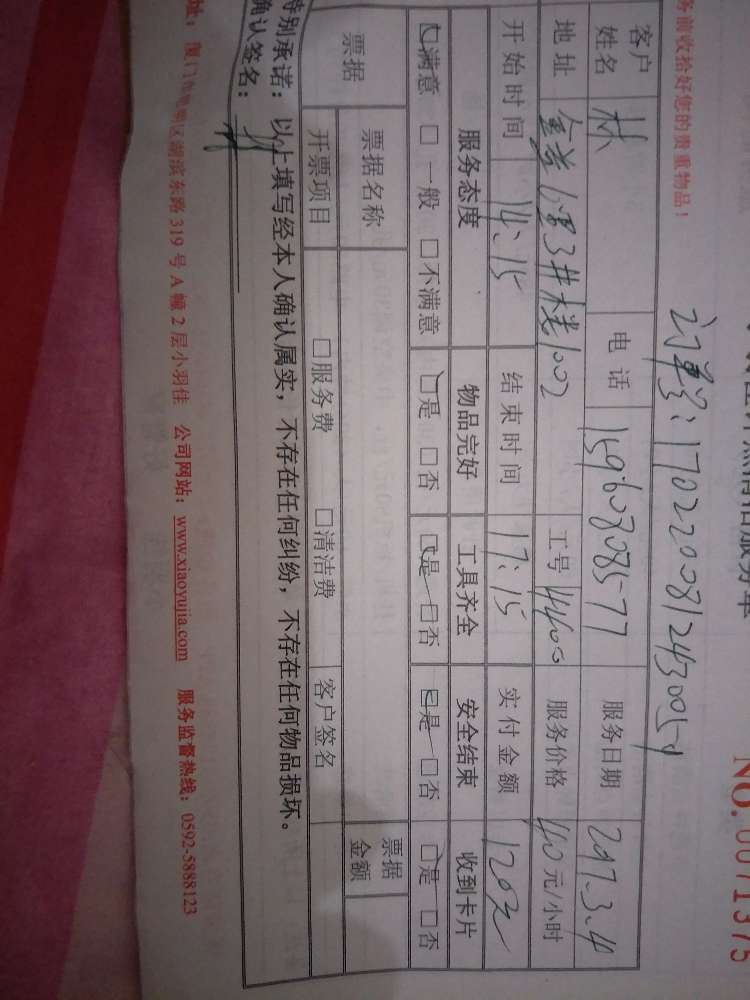 NO.0071375
务前收拾好您的贵重物品！
订单号：
客户姓名 林 电话 15960808577 服务日期
地址 3#楼1002 工号 4400 服务价格 40元/小时
开始时间 14:15 结束时间 17:15 实付金额 120元
服务态度 物品完好 工具齐全 安全结束 收到卡片
□满意 □一般 □不满意 □是 □否 □是 □否 □是 □否 □是 □否
票据 票据名称 票据金额
开票项目 □服务费 □清洁费 客户签名
特别承诺：以上填写经本人确认属实，不存在任何纠纷，不存在任何物品损坏。
确认签名：
址：厦门市思明区湖滨东路 319 号 A 幢 2 层小羽佳 公司网站：www.xiaoyujia.com 服务监督热线：0592-5888123